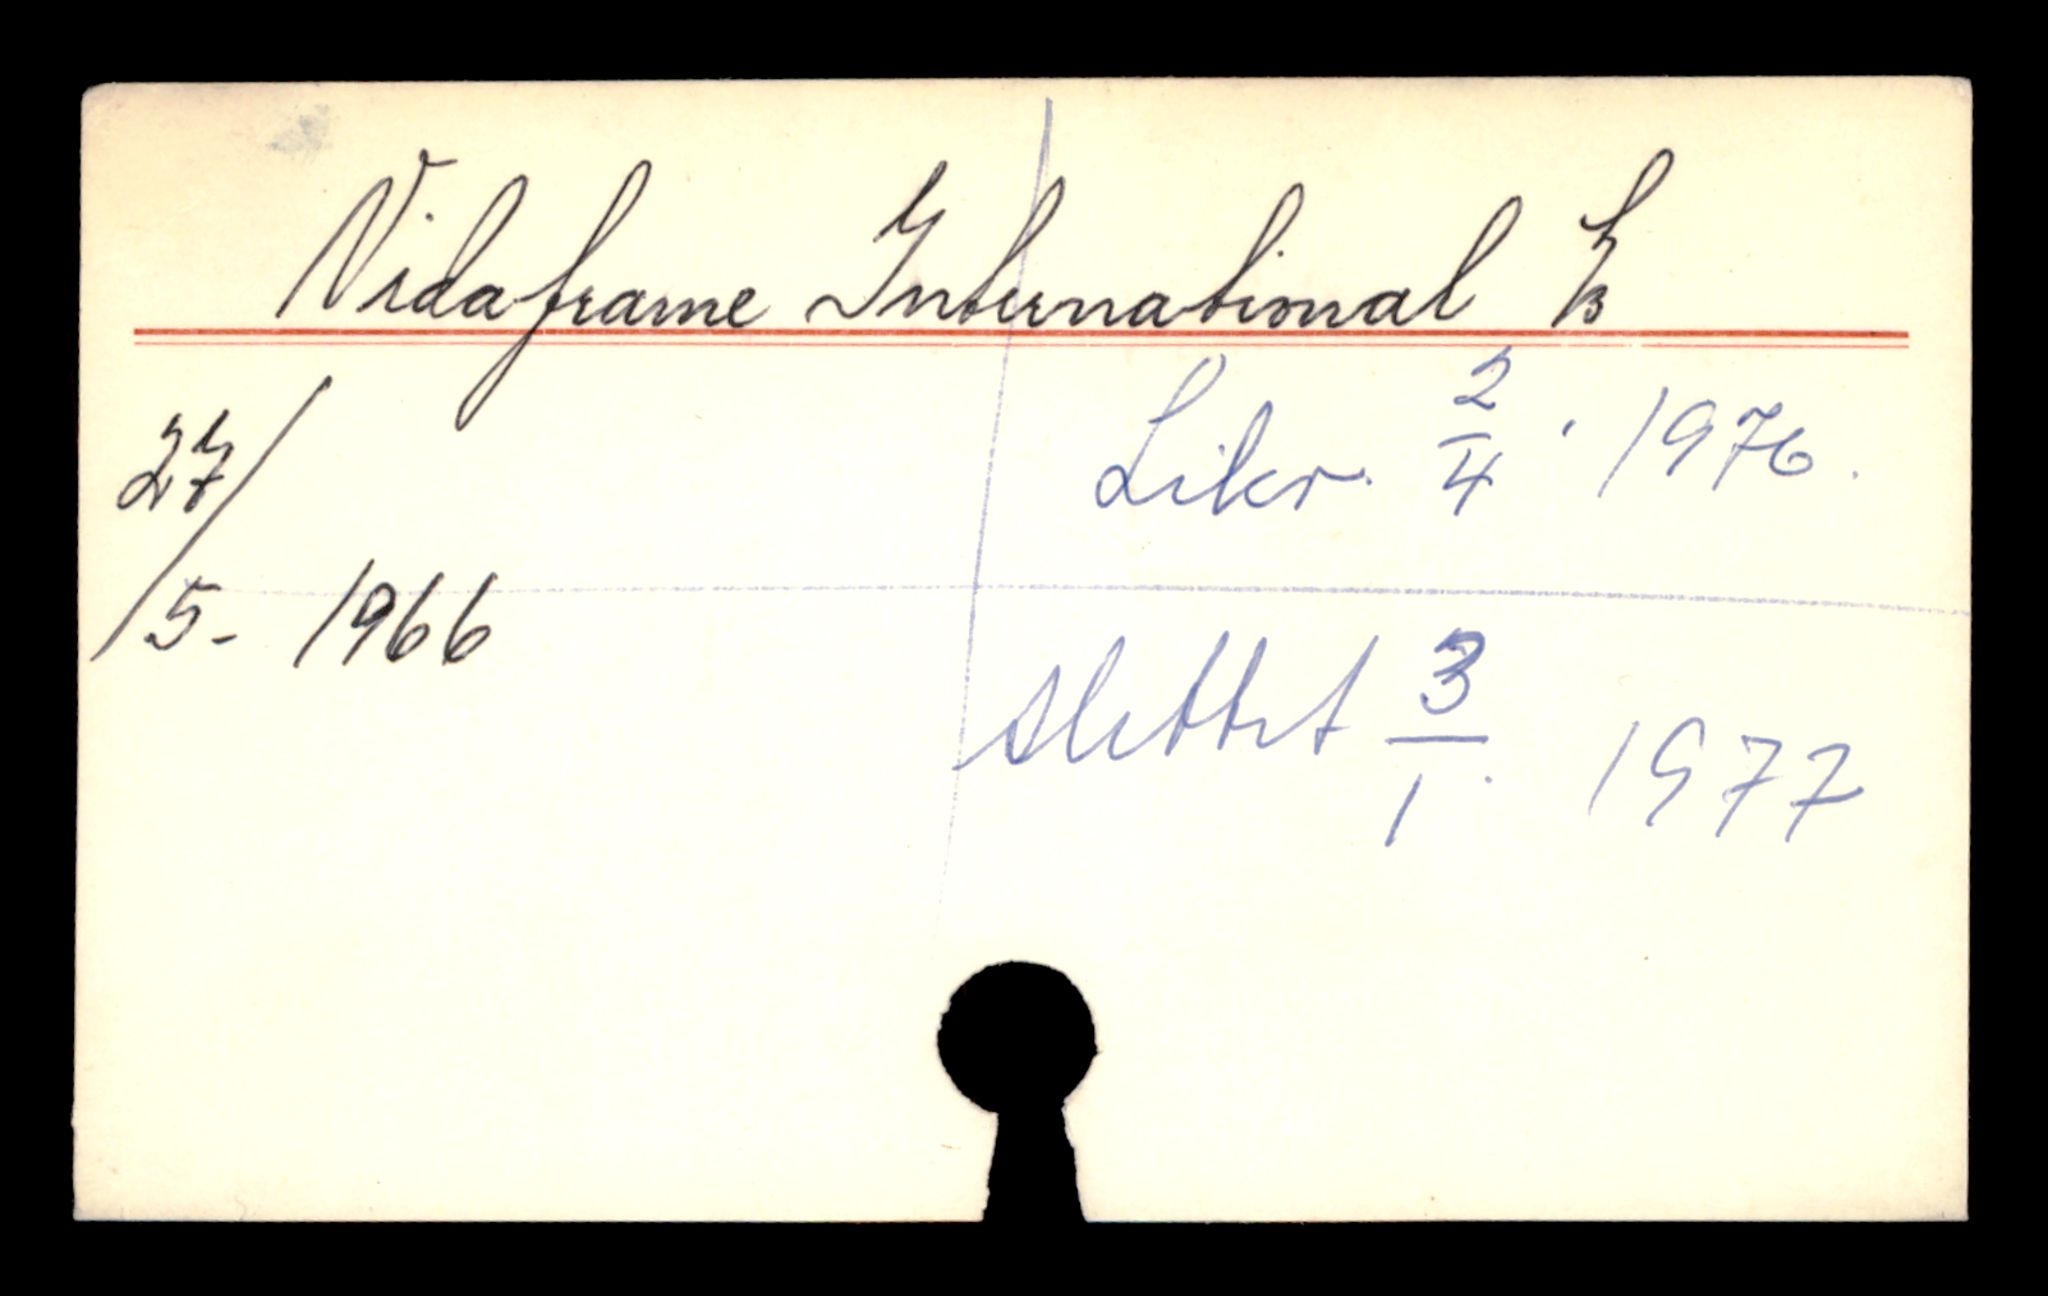 Nidaframe International A/S
27/5- 1966
Likv. 2/4. 1976.
slettet 3/1. 1977